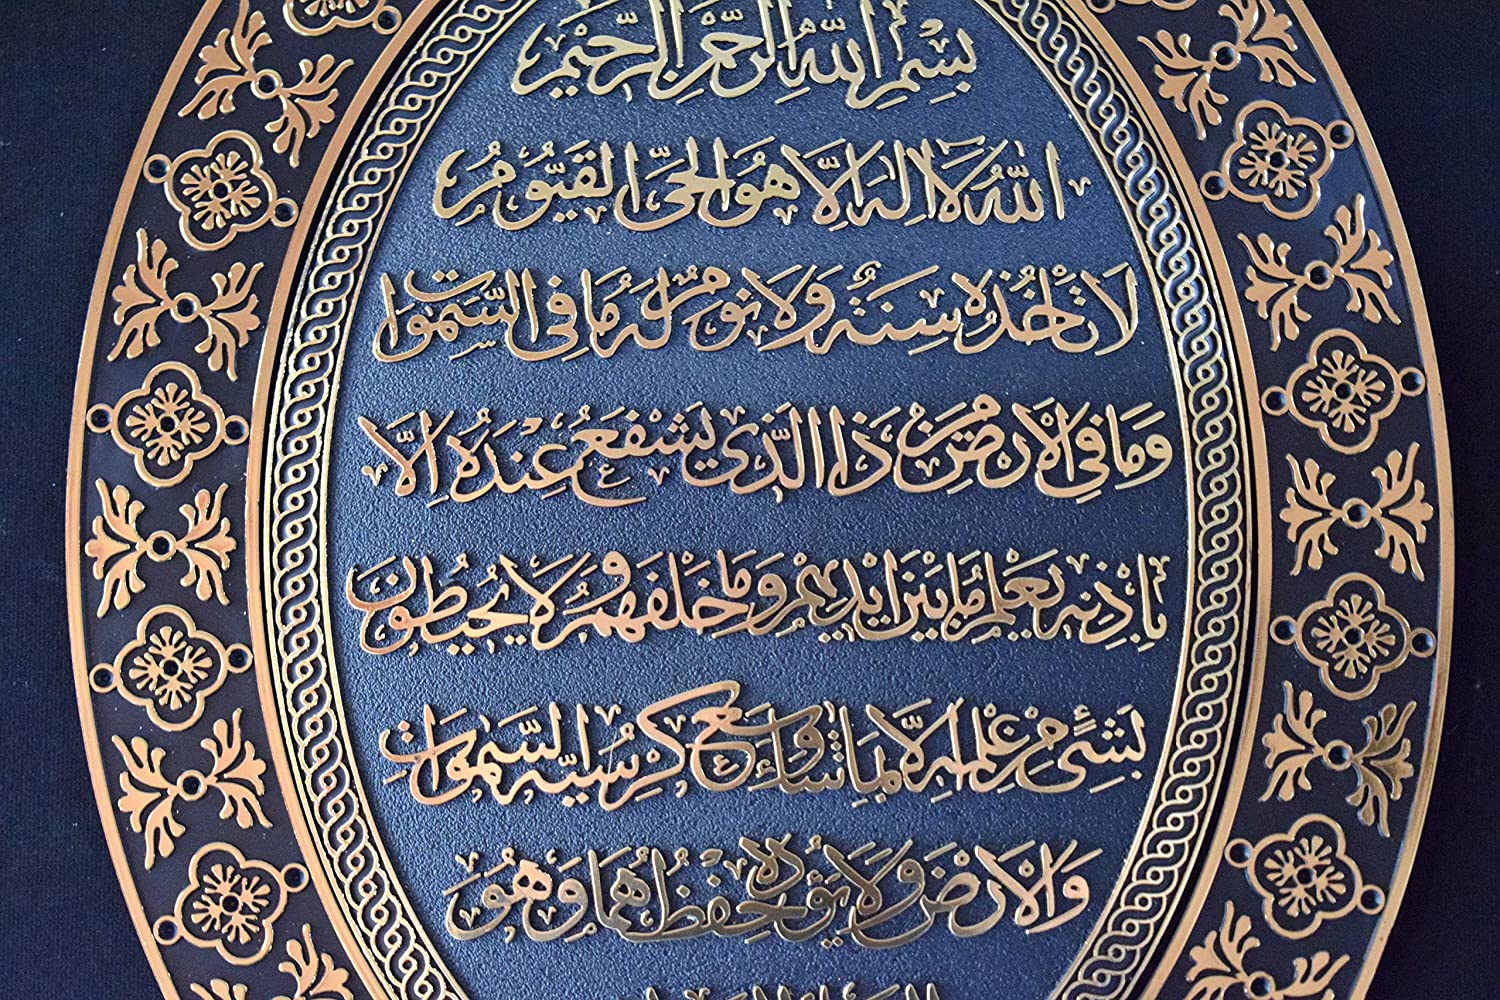 بِسْمِ اللهِ الرَّحْمٰنِ الرَّحِيْمِ
اَللهُ لَا اِلٰهَ اِلَّا هُوَ الْحَيُّ الْقَيُّوْمُ
لَا تَأْخُذُهُ سِنَةٌ وَلَا نَوْمٌ لَهُ مَا فِي السَّمٰوَاتِ
وَمَا فِي الْاَرْضِ مَنْ ذَا الَّذِي يَشْفَعُ عِنْدَهُ اِلَّا
بِاِذْنِهِ يَعْلَمُ مَا بَيْنَ اَيْدِيْهِمْ وَمَا خَلْفَهُمْ وَلَا يُحِيْطُوْنَ
بِشَيْءٍ مِنْ عِلْمِهِ اِلَّا بِمَا شَاءَ وَسِعَ كُرْسِيُّهُ السَّمٰوَاتِ
وَالْاَرْضَ وَلَا يَؤُدُهُ حِفْظُهُمَا وَهُوَ